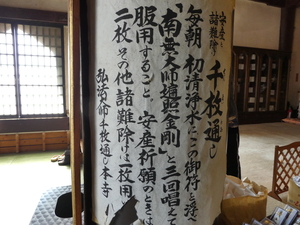 安産、諸難除
千枚通し
毎朝、初清浄水にこの御符を浮べ
「南無大師遍照金剛」と三回唱えて
服用すること 安産祈願のときは
二枚 その他諸難除けは一枚用
弘法大師 千枚通し本寺